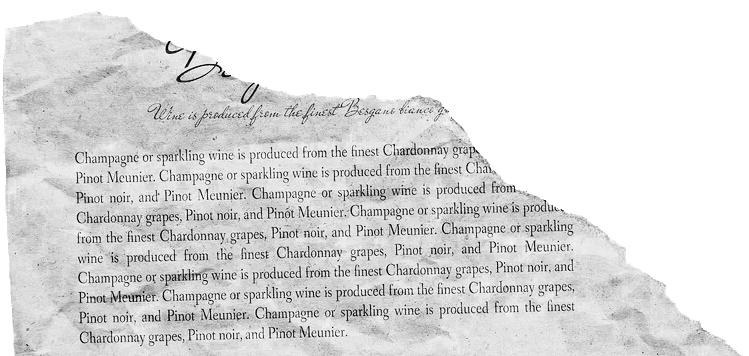 Wine is produced from the finest Besgano bianco
Champagne or sparkling wine is produced from the finest Chardonnay
Pinot Meunier. Champagne or sparkling wine is produced from the finest
Pinot noir, and Pinot Meunier. Champagne or sparkling wine is produced from
Chardonnay grapes, Pinot noir, and Pinot Meunier. Champagne or sparkling wine is
from the finest Chardonnay grapes, Pinot noir, and Pinot Meunier. Champagne or sparkling
wine is produced from the finest Chardonnay grapes, Pinot noir, and Pinot Meunier.
Champagne or sparkling wine is produced from the finest Chardonnay grapes, Pinot noir, and
Pinot Meunier. Champagne or sparkling wine is produced from the finest Chardonnay grapes,
Pinot noir, and Pinot Meunier. Champagne or sparkling wine is produced from the finest
Chardonnay grapes, Pinot noir, and Pinot Meunier.